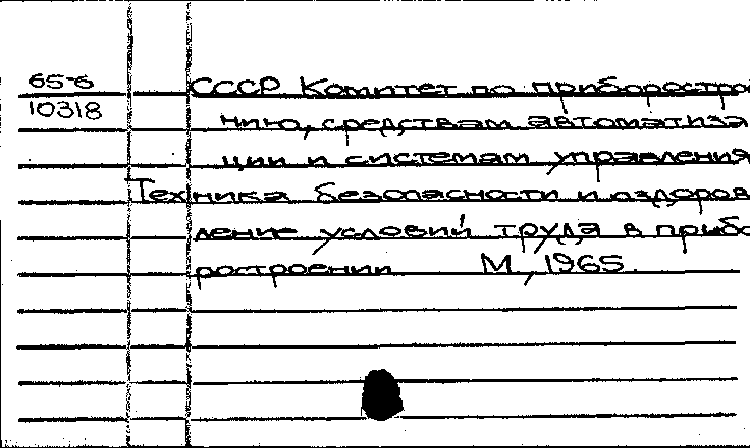 65-6
10318
СССР Комитет по приборострое
нию, средствам автоматиза
ции и системам управления
Техника безопасности и оздоров
ление условий труда в прибо
ростроении М., 1965.